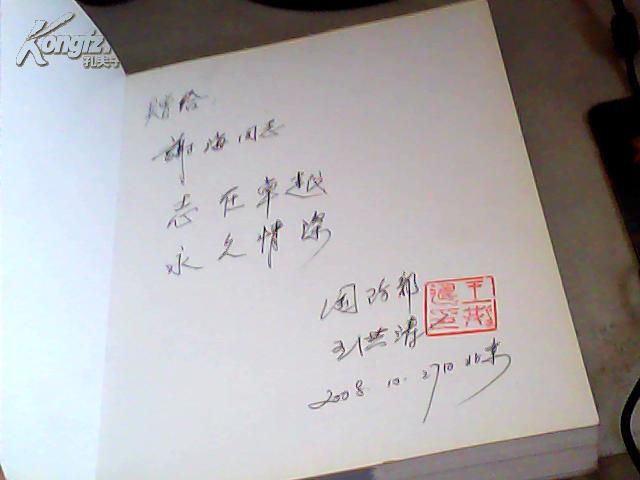 Kongfz
孔夫子
赠给:
谢海同志
志在卓越
永久情深
国防部
王洪清
2008.10.27日北京